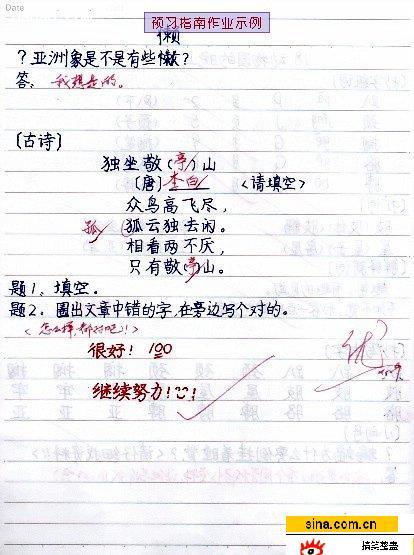 Date
预习指南作业示例
懒
？亚洲象是不是有些懒？
答：我想是的。
〔古诗〕
独坐敬（亭）山
〔唐〕李白 〈请填空〉
众鸟高飞尽，
孤 狐云独去闲。
相看两不厌，
只有敬（亭）山。
题1、填空。
题2、圈出文章中错的字，在旁边写个对的。
〈怎么样，都对吧！〉
很好！100
优
继续努力!
sina.com.cn
搞笑整蛊